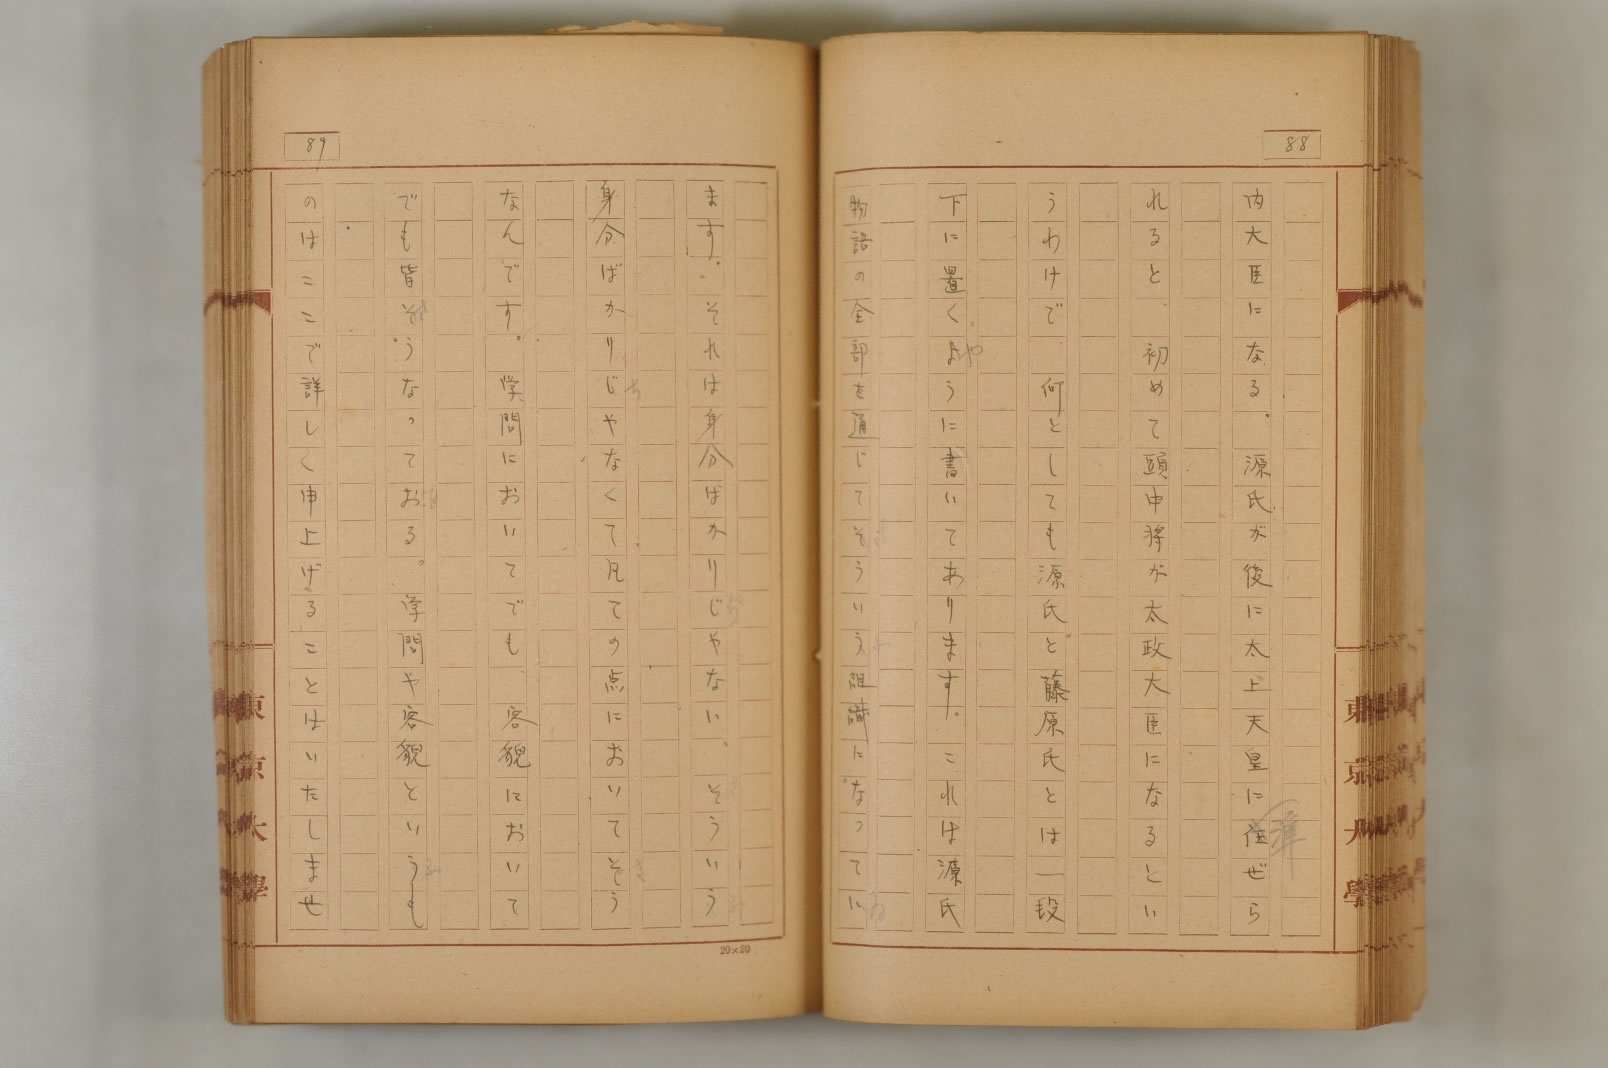 88
内大臣になる。源氏が後に太上天皇に准ぜら
れると、初めて頭中将が太政大臣になるとい
うわけで、何としても源氏と藤原氏とは一段
下に置くやうに書いてあります。これは源氏
物語の全部を通じてさういふ組織になってゐ
東京大學
89
ます。それは身分ばかりじゃない、そういう
身分ばかりぢやなくて凡ての点においてさう
なんです。学問においてでも、容貌において
でも皆さうなってをる。学問や容貌といふも
のはここで詳しく申上げることはいたしませ
東京大學
20×20